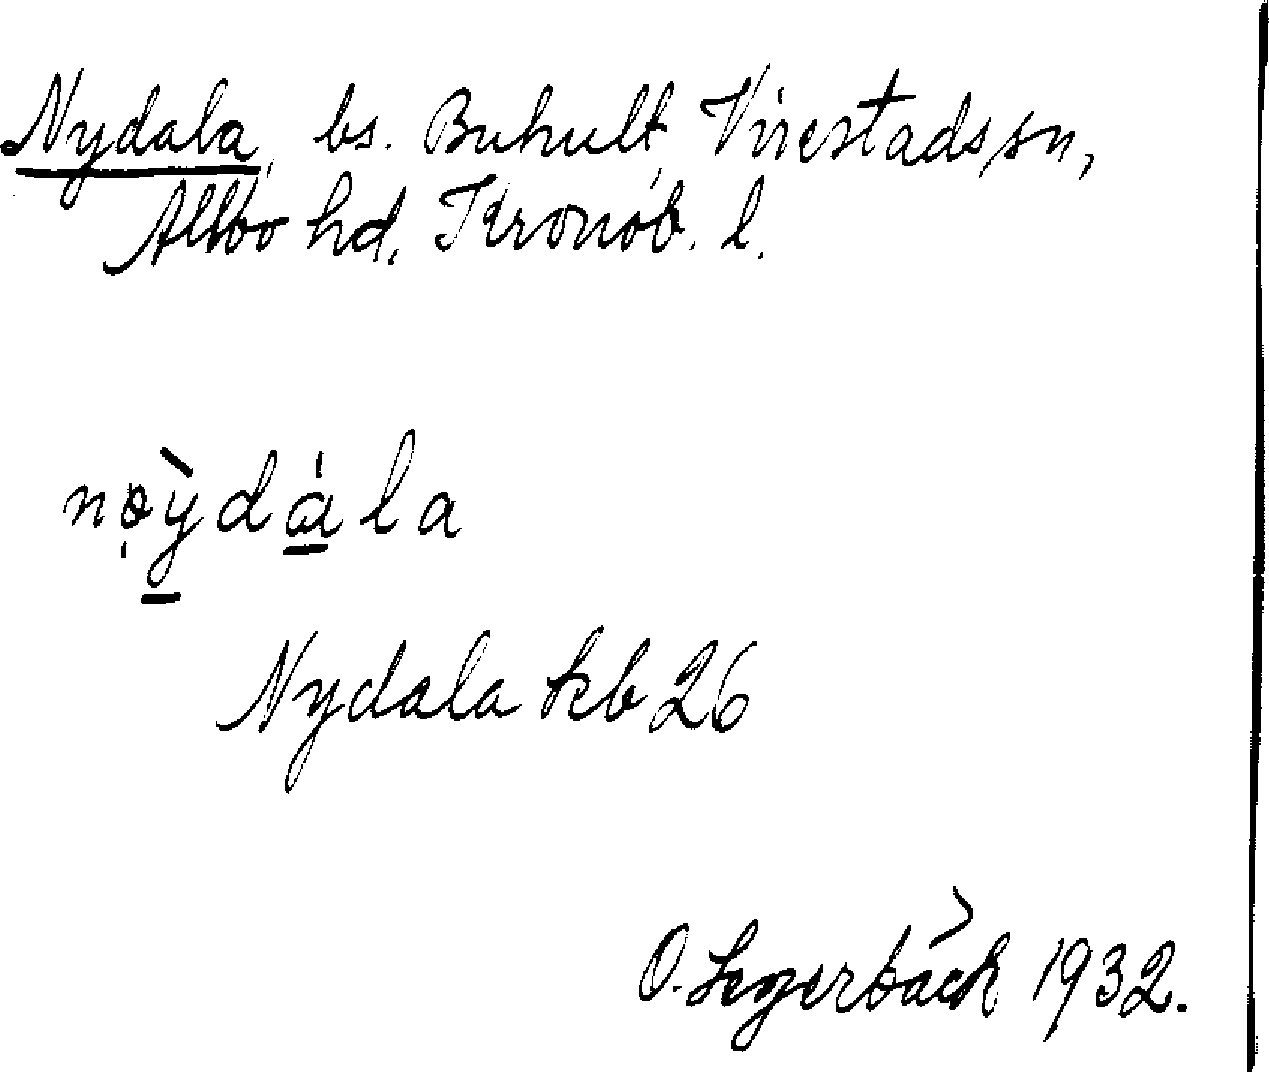 Nydala, bs. Buhult, Virestads sn,
Allbo hd, Kronob. l.
nøỳdȧla
Nydala kb 26
O. Segerbäck 1932.